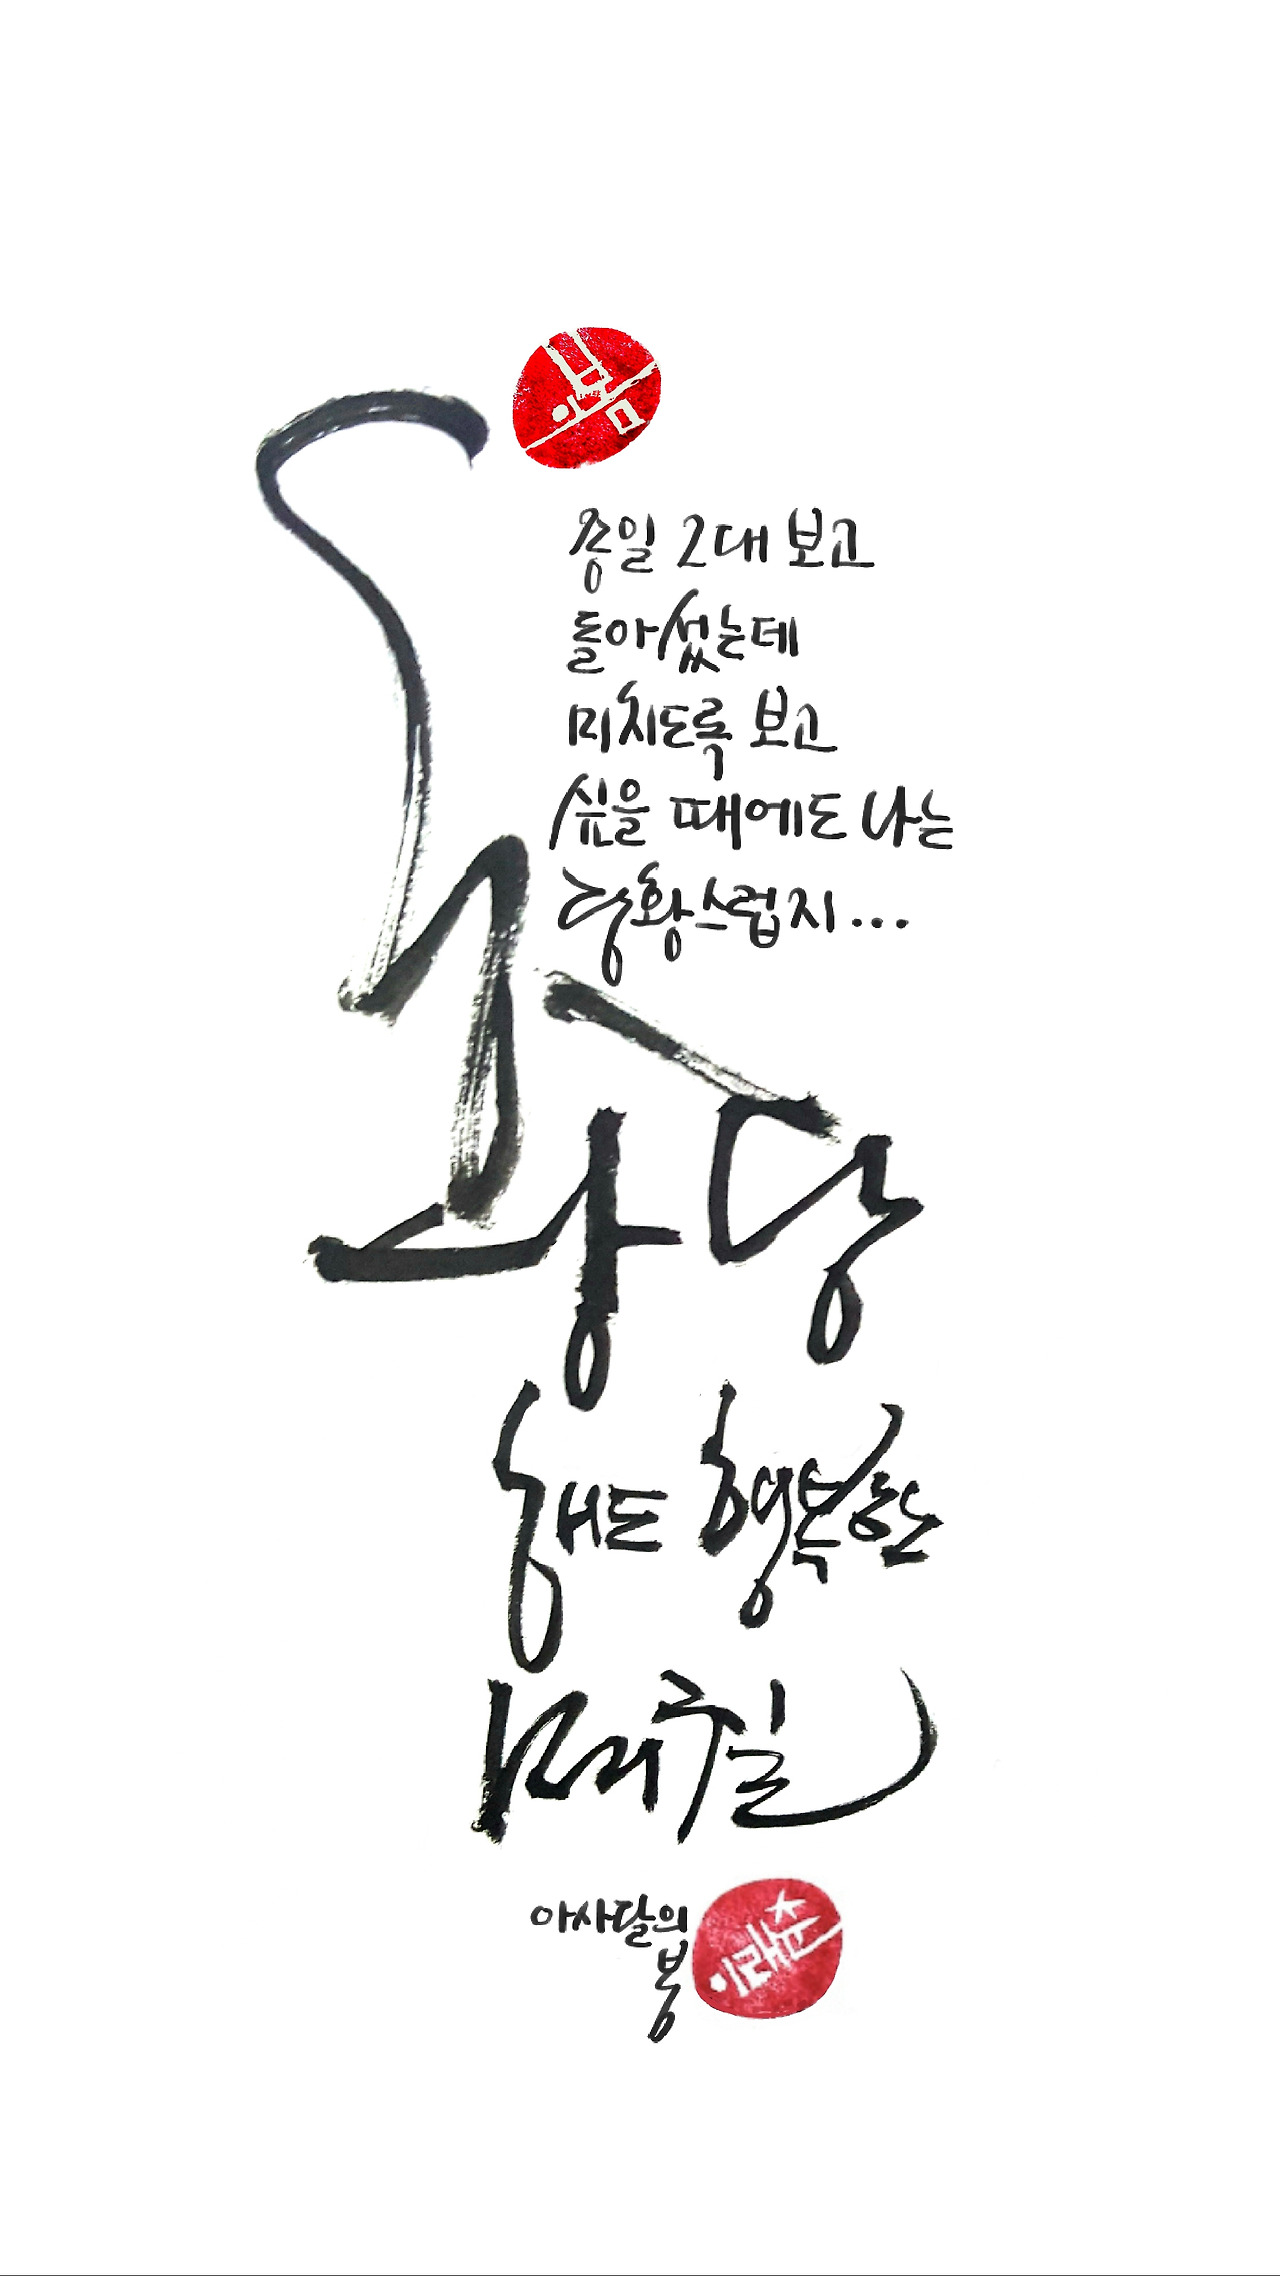 봄
종일 그대 보고
돌아섰는데
미치도록 보고
싶을 때에도 나는
당황스럽지...
황당
해도 행복한
아사달의
봄
이래춘